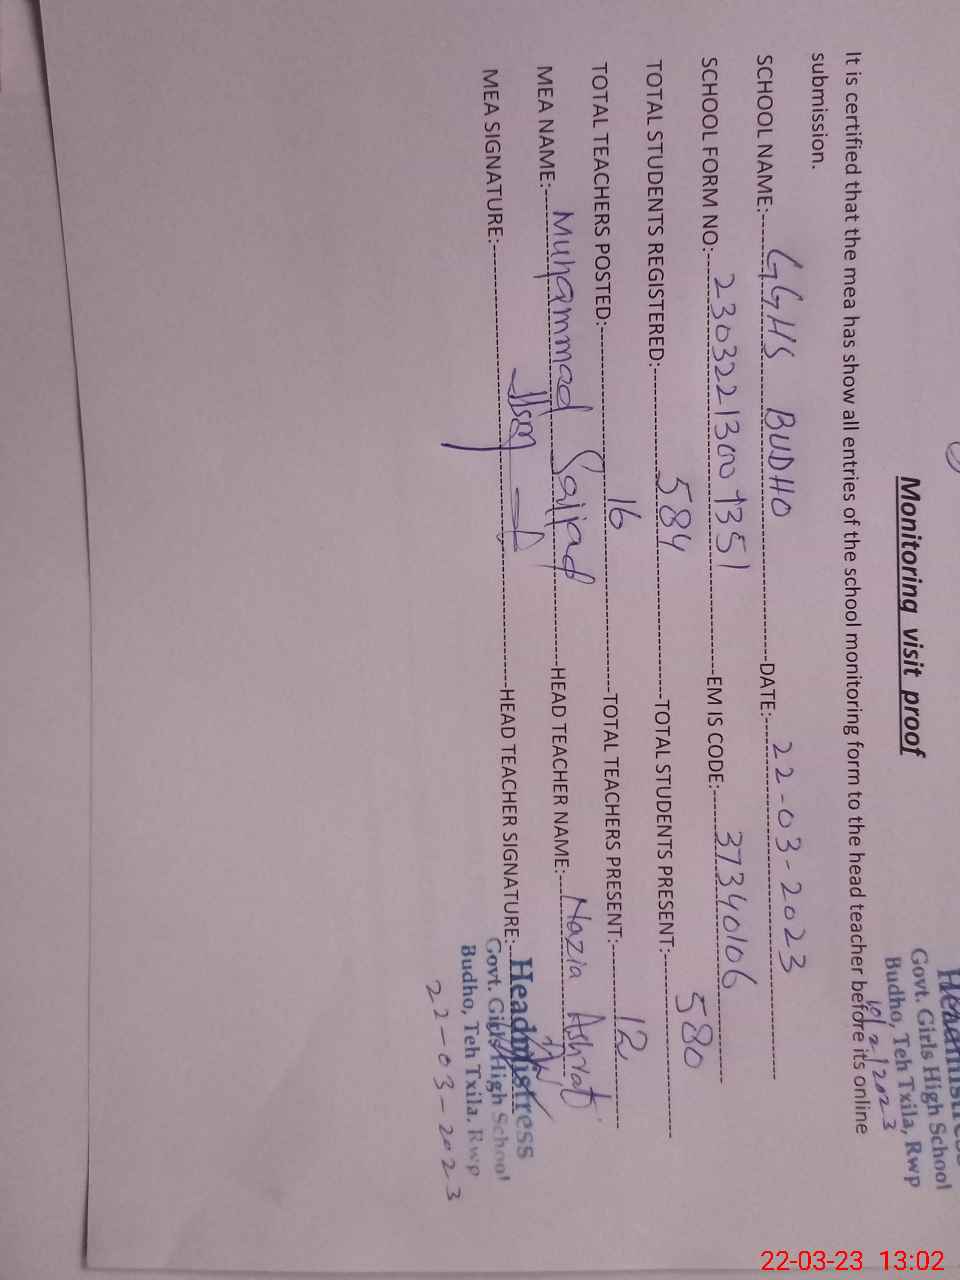 Headmistress
Govt. Girls High School
Budho, Teh Txila, Rwp
Monitoring visit proof
It is certified that the mea has show all entries of the school monitoring form to the head teacher before its online
submission.
SCHOOL NAME:- GGHS BUDHO DATE:- 22-03-2023
SCHOOL FORM NO:- EM IS CODE:- 37340106
TOTAL STUDENTS REGISTERED:- 584 TOTAL STUDENTS PRESENT:- 580
TOTAL TEACHERS POSTED:- 16 TOTAL TEACHERS PRESENT:- 12
MEA NAME:- Muhammad Sajjad HEAD TEACHER NAME:- Nazia Ashraf
MEA SIGNATURE:- HEAD TEACHER SIGNATURE:-
Headmistress
Govt. Girls High School
Budho, Teh Txila. Rwp
22-03-2023
22-03-23 13:02